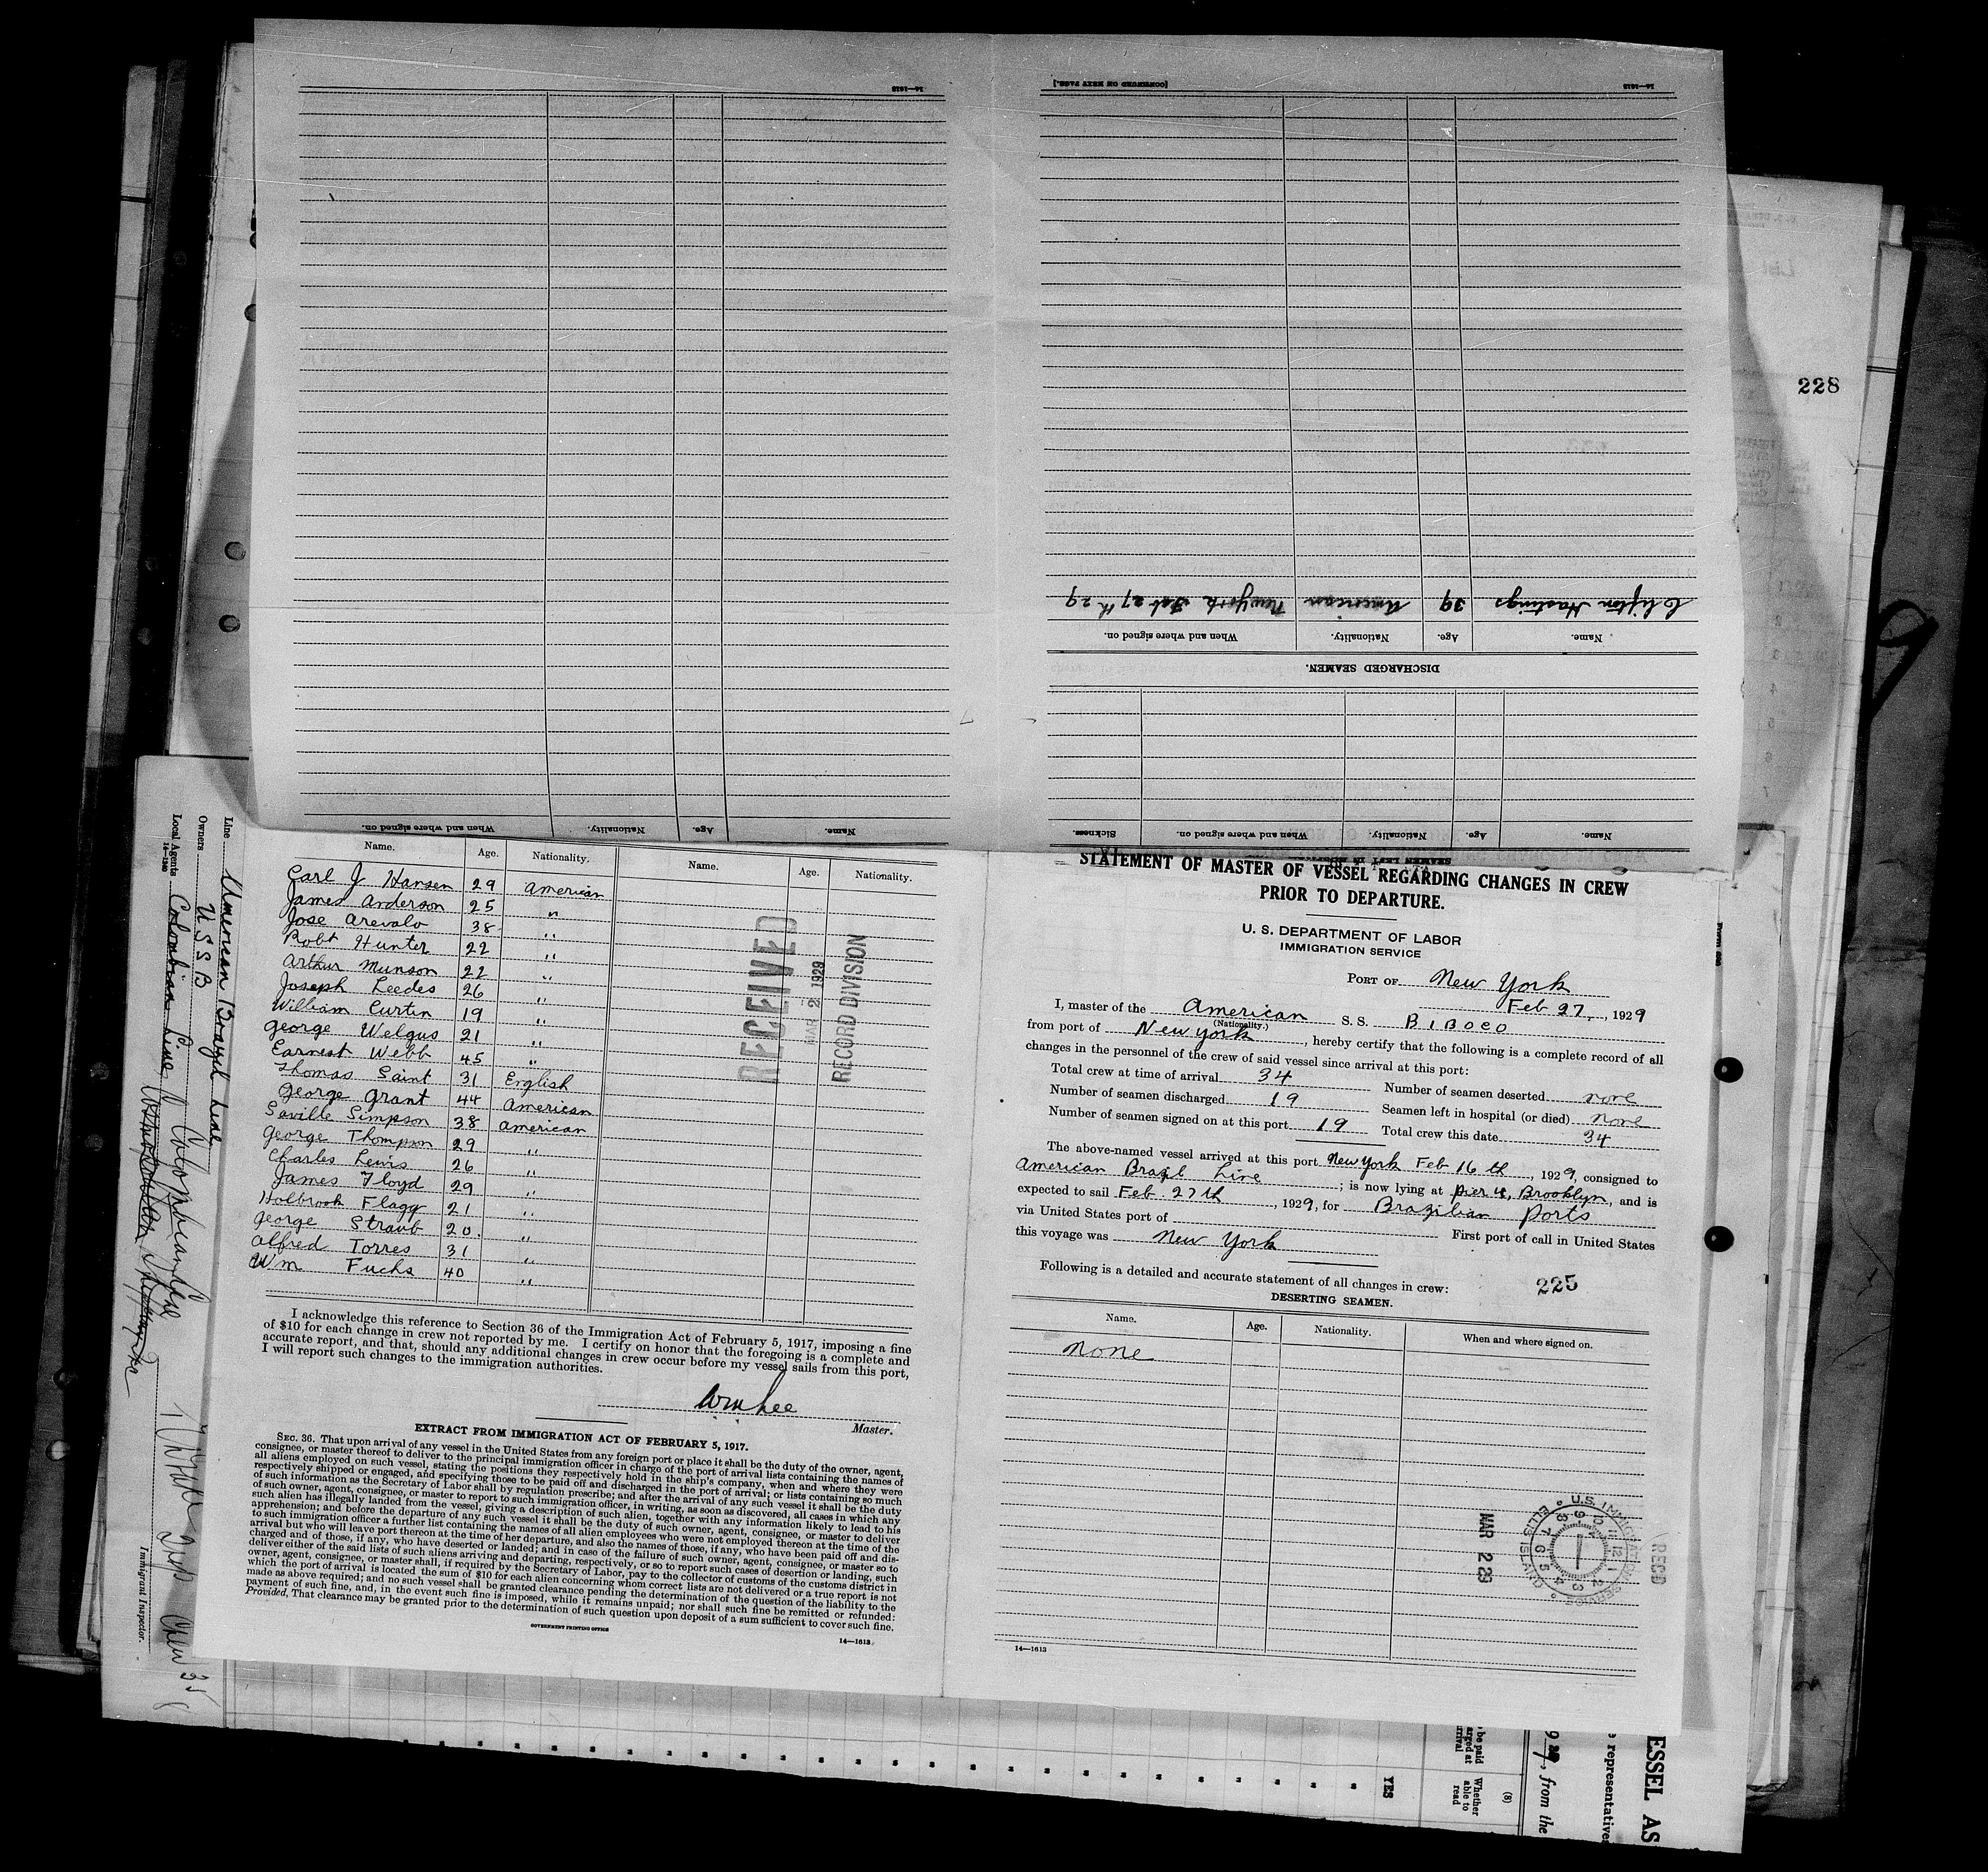 14—1613
[CONTINUED ON NEXT PAGE.]
14—1613
Clifton Hastings 39 American New York Feb 27th 29
Name. Age. Nationality. When and where signed on.
DISCHARGED SEAMEN.
Name. Age. Nationality. When and where signed on. Sickness.
SEAMEN LEFT IN HOSPITAL
Name. Age. Nationality. When and where signed on.
228
Line American Brazil Line
Owners U.S.S.B
Local Agents Colombian Line
14—1240
Immigrant Inspector.
Name. Age. Nationality. Name. Age. Nationality.
Carl J Hansen 29 American
James Anderson 25 "
Jose Arevalo 38 "
Robt Hunter 22 "
Arthur Munson 22 "
Joseph Leedes 26 "
William Curtin 19 "
George Welgus 21 "
Earnest Webb 45 "
Thomas Saint 31 English
George Grant 44 American
Saville Simpson 38 American
George Thompson 29 "
Charles Lewis 26 "
James Floyd 29 "
Holbrook Flagg 21 "
George Straub 20. "
Alfred Torres 31 "
Wm Fuchs 40 "
RECEIVED
MAR 2 1929
RECORD DIVISION
I acknowledge this reference to Section 36 of the Immigration Act of February 5, 1917, imposing a fine
of $10 for each change in crew not reported by me. I certify on honor that the foregoing is a complete and
accurate report, and that, should any additional changes in crew occur before my vessel sails from this port,
I will report such changes to the immigration authorities.
Wm Lee
Master.
EXTRACT FROM IMMIGRATION ACT OF FEBRUARY 5, 1917.
SEC. 36. That upon arrival of any vessel in the United States from any foreign port or place it shall be the duty of the owner, agent,
consignee, or master thereof to deliver to the principal immigration officer in charge of the port of arrival lists containing the names of
all aliens employed on such vessel, stating the positions they respectively hold in the ship's company, when and where they were
respectively shipped or engaged, and specifying those to be paid off and discharged in the port of arrival; or lists containing so much
of such information as the Secretary of Labor shall by regulation prescribe; and after the arrival of any such vessel it shall be the duty
of such owner, agent, consignee, or master to report to such immigration officer, in writing, as soon as discovered, all cases in which any
such alien has illegally landed from the vessel, giving a description of such alien, together with any information likely to lead to his
apprehension; and before the departure of any such vessel it shall be the duty of such owner, agent, consignee, or master to deliver
to such immigration officer a further list containing the names of all alien employees who were not employed thereon at the time of the
arrival but who will leave port thereon at the time of her departure, and also the names of those, if any, who have been paid off and dis-
charged and of those, if any, who have deserted or landed; and in case of the failure of such owner, agent, consignee, or master so to
deliver either of the said lists of such aliens arriving and departing, respectively, or so to report such cases of desertion or landing, such
owner, agent, consignee, or master shall, if required by the Secretary of Labor, pay to the collector of customs of the customs district in
which the port of arrival is located the sum of $10 for each alien concerning whom correct lists are not delivered or a true report is not
made as above required; and no such vessel shall be granted clearance pending the determination of the question of the liability to the
payment of such fine, and, in the event such fine is imposed, while it remains unpaid; nor shall such fine be remitted or refunded:
Provided, That clearance may be granted prior to the determination of such question upon deposit of a sum sufficient to cover such fine.
GOVERNMENT PRINTING OFFICE
14—1613
STATEMENT OF MASTER OF VESSEL REGARDING CHANGES IN CREW
PRIOR TO DEPARTURE.
U. S. DEPARTMENT OF LABOR
IMMIGRATION SERVICE
PORT OF New York
Feb 27, 1929
I, master of the American S. S. BIBOCO
(Nationality.)
from port of New York, hereby certify that the following is a complete record of all
changes in the personnel of the crew of said vessel since arrival at this port:
Total crew at time of arrival 34 Number of seamen deserted none
Number of seamen discharged 19 Seamen left in hospital (or died) none
Number of seamen signed on at this port 19 Total crew this date 34
The above-named vessel arrived at this port New York Feb 16th, 1929, consigned to
American Brazil Line; is now lying at Pier 4, Brooklyn, and is
expected to sail Feb 27th, 1929, for Brazilian Ports
via United States port of First port of call in United States
this voyage was New York
Following is a detailed and accurate statement of all changes in crew: 225
DESERTING SEAMEN.
Name. Age. Nationality. When and where signed on.
None
MAR 2 29
U.S. IMMIGRATION SERVICE ELLIS ISLAND
REC'D
14—1613
YES
Whether able to read
(8)
from the
representatives
ESSEL AS